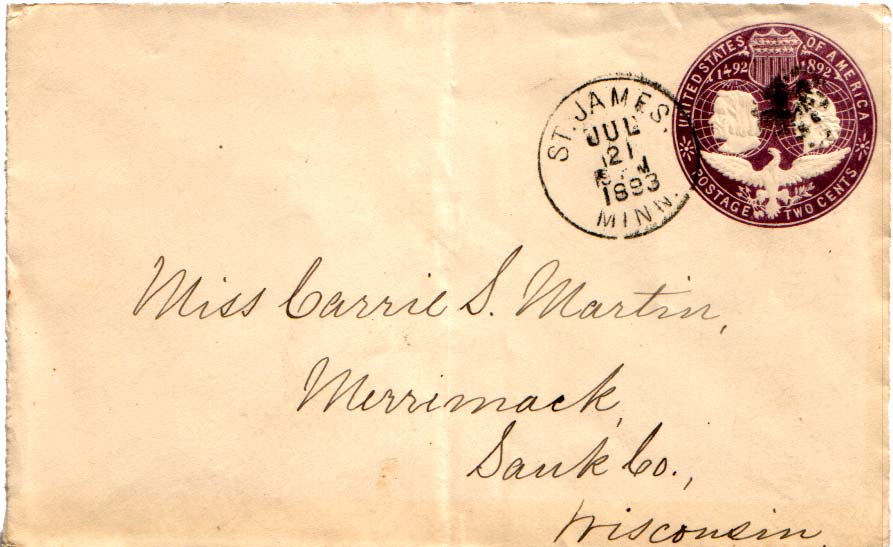 UNITED STATES OF AMERICA
1492 1892
POSTAGE TWO CENTS
ST. JAMES,
JUL
21
1893
MINN.
Miss Carrie S. Martin,
Merrimack,
Sauk Co.,
Wisconsin.